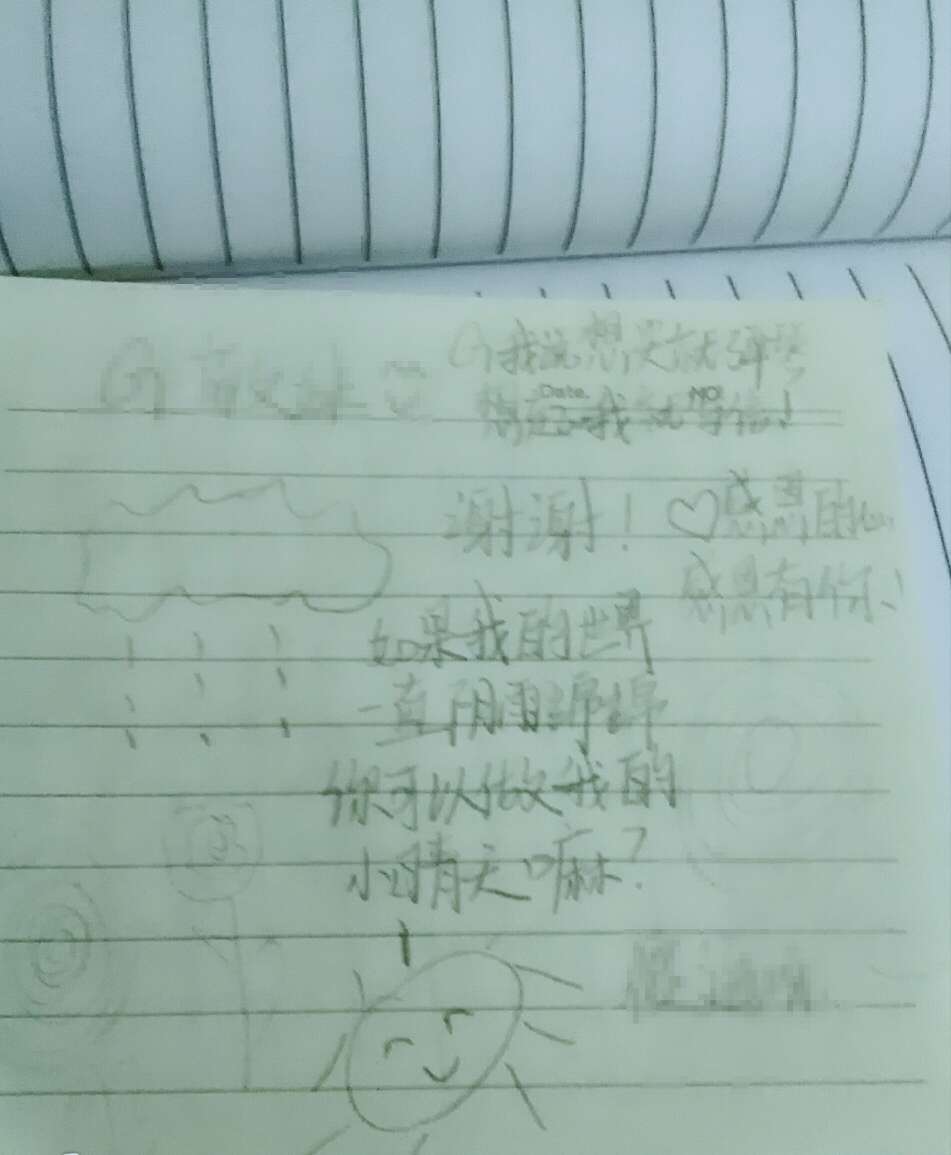 我说想哭就弹琴
想起我就写信!
Date. NO.
谢谢! ♡感恩的心
感恩有你!
如果我的世界
一直阴雨绵绵
你可以做我的
小晴天嘛?